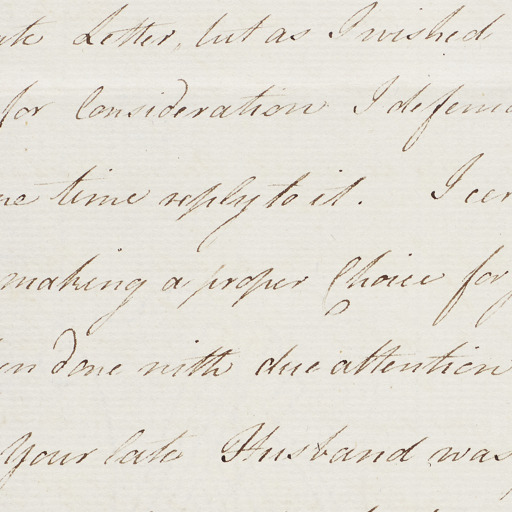 Letter, but as I wished
for Consideration I
time reply to it. I
making a proper Choice for
done with due attention
Your late Husband was